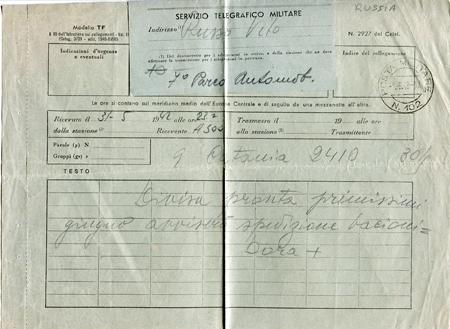 RUSSIA
Modello TF
SERVIZIO TELEGRAFICO MILITARE
N. 2927 del Catal.
Indirizzo Russo Vito
Indicazioni d'urgenza
e eventuali
Indice del collegamento
7° Parco Automob.
POSTA MILITARE
N. 102
Le ore si contano sul meridiano medio dell'Europa Centrale e di seguito da una mezzanotte all'altra.
Ricevuto il 31-5 1942 ore
Trasmesso il 19 ore
dalla stazione (2) Ricevente
alla stazione (2) Trasmittente
Parole (p) N
Gruppi (gr) »
Catania 2410 30/
TESTO
Divisa pronta primissimi
giugno avviserò spedizione bacioni =
Dora +